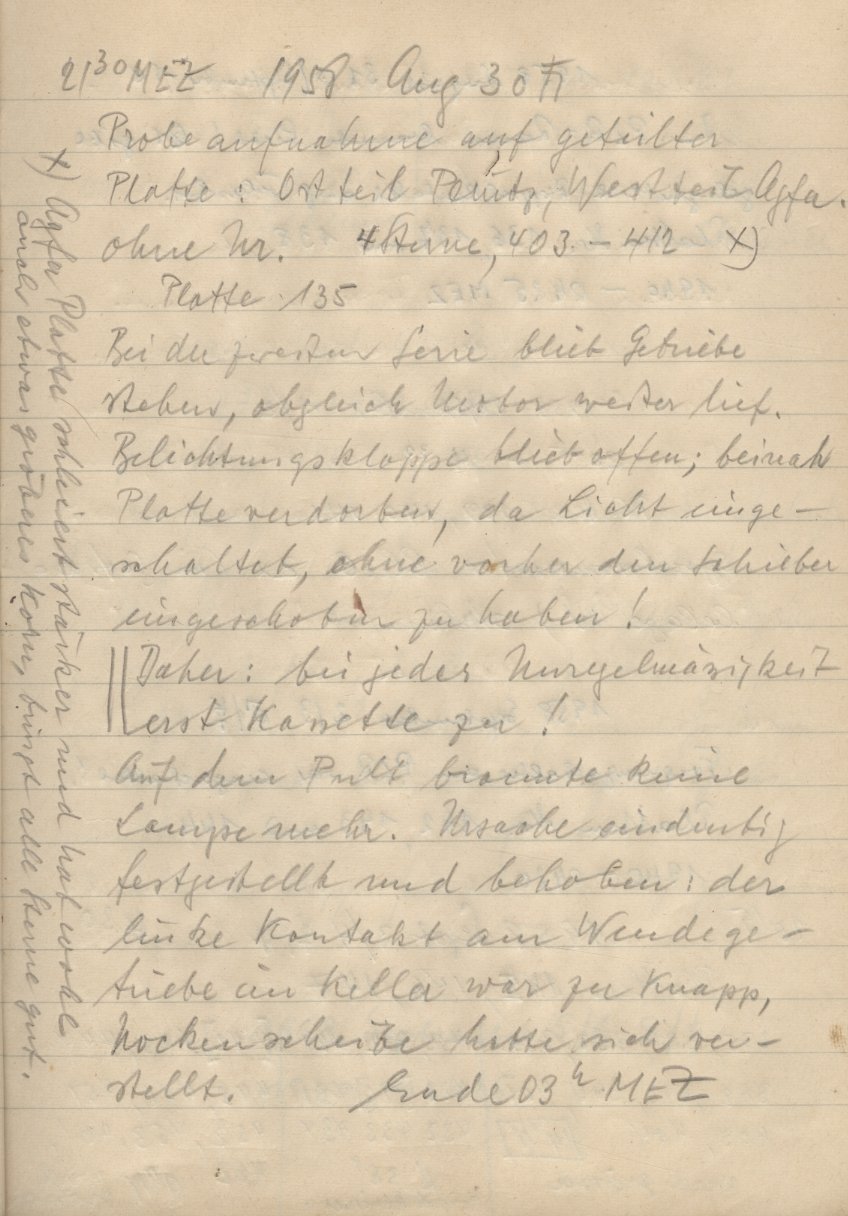 21³⁰ MEZ 1958 Aug 30 Fr
Probeaufnahme auf geteilter
Platte: Ostteil Perutz, Westteil Agfa.
ohne Nr. 4 Sterne, 403 – 412 x)
Platte 135
Bei der zweiten Serie blieb Getriebe
stehen, obgleich Motor weiter lief.
Belichtungsklappe blieb offen; beinah
Platte verdorben, da Licht einge-
schaltet, ohne vorher den Schieber
eingeschoben zu haben!
Daher: bei jeder Unregelmäsigkeit
erst Kassette zu!
Auf dem Pult brannte keine
Lampe mehr. Ursache eindeutig
festgestellt und behoben: der
linke Kontakt am Wendege-
triebe im Keller war zu knapp,
Nockenscheibe hatte sich ver-
stellt. Ende 03ʰ MEZ
x) Agfa Platte schleiert stärker und hat wohl
auch etwas gröberes Korn, bringt alle Sterne gut.